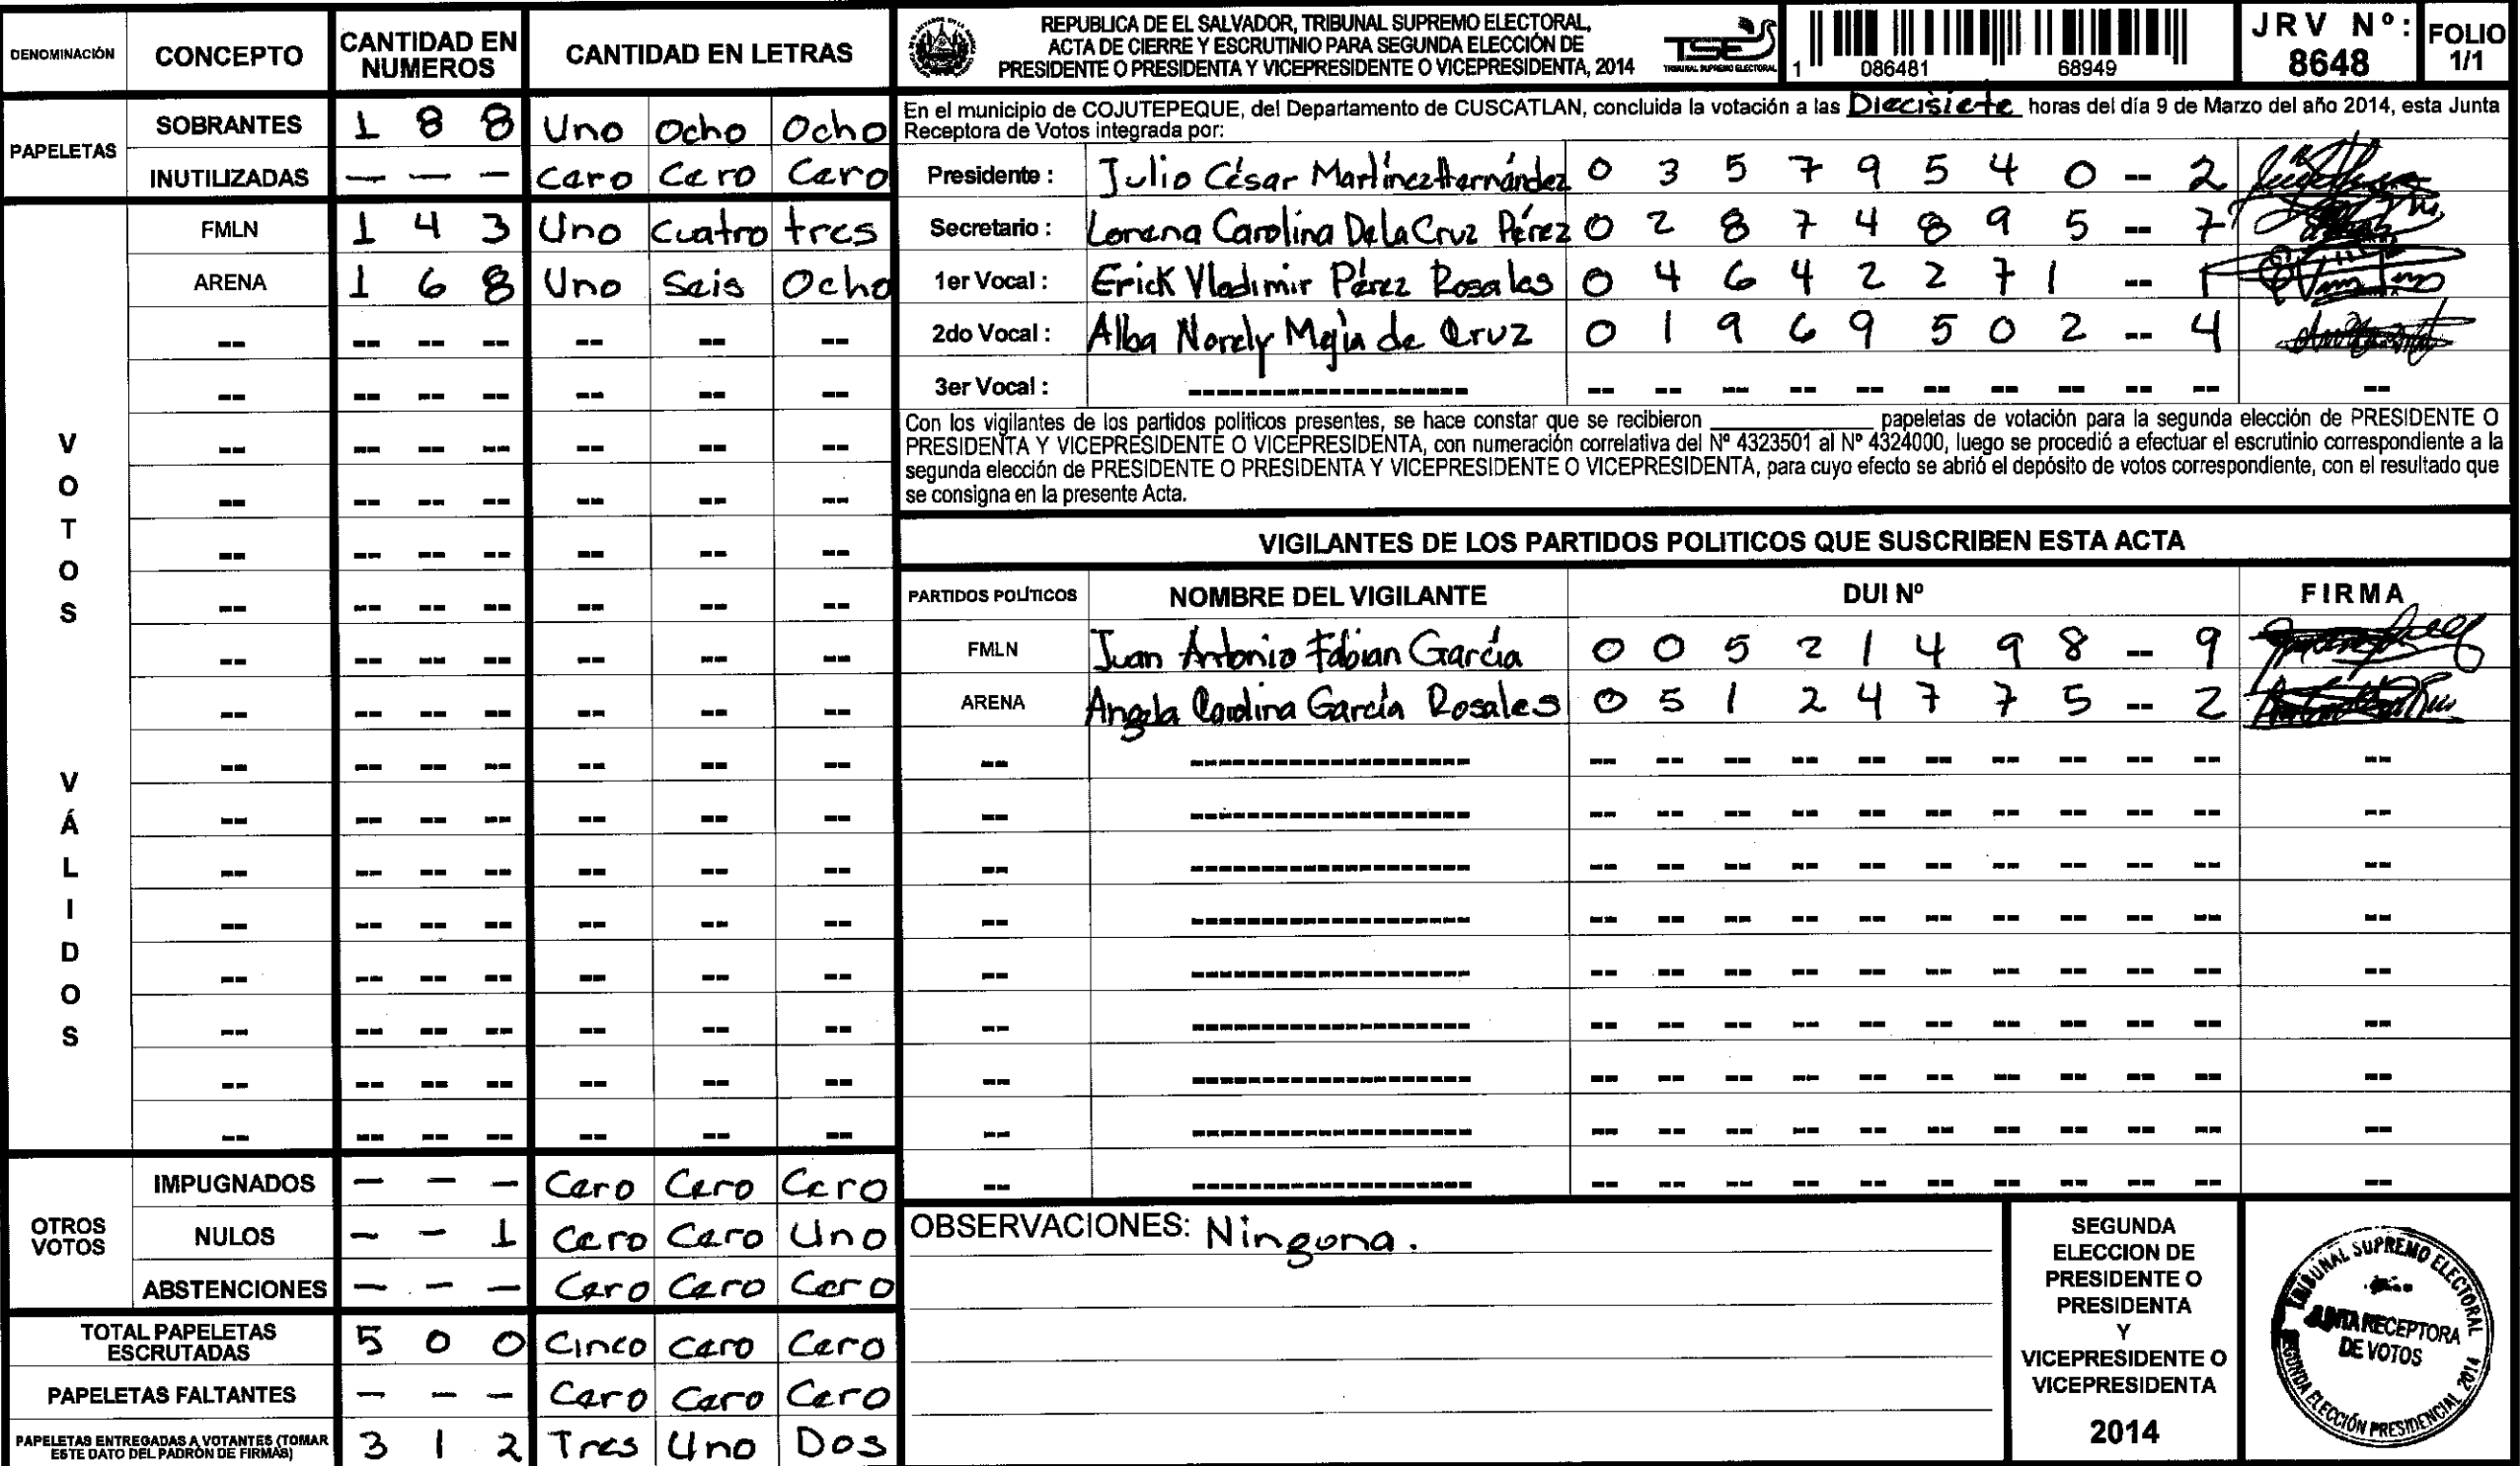 DENOMINACIÓN CONCEPTO CANTIDAD EN NUMEROS CANTIDAD EN LETRAS
PAPELETAS
SOBRANTES 1 8 8 Uno Ocho Ocho
INUTILIZADAS — — — Cero Cero Cero
VOTOS VÁLIDOS
FMLN 1 4 3 Uno Cuatro tres
ARENA 1 6 8 Uno Seis Ocho
OTROS VOTOS
IMPUGNADOS — — — Cero Cero Cero
NULOS — — 1 Cero Cero Uno
ABSTENCIONES — — — Cero Cero Cero
TOTAL PAPELETAS ESCRUTADAS 5 0 0 Cinco Cero Cero
PAPELETAS FALTANTES — — — Cero Cero Cero
PAPELETAS ENTREGADAS A VOTANTES (TOMAR ESTE DATO DEL PADRÓN DE FIRMAS) 3 1 2 Tres Uno Dos
REPUBLICA DE EL SALVADOR, TRIBUNAL SUPREMO ELECTORAL,
ACTA DE CIERRE Y ESCRUTINIO PARA SEGUNDA ELECCIÓN DE
PRESIDENTE O PRESIDENTA Y VICEPRESIDENTE O VICEPRESIDENTA, 2014
TSE
TRIBUNAL SUPREMO ELECTORAL
1 086481 68949
JRV Nº: 8648
FOLIO 1/1
En el municipio de COJUTEPEQUE, del Departamento de CUSCATLAN, concluida la votación a las Diecisiete horas del día 9 de Marzo del año 2014, esta Junta
Receptora de Votos integrada por:
Presidente : Julio César Martínez Hernández 0 3 5 7 9 5 4 0 -- 2
Secretario : Lorena Carolina De la Cruz Pérez 0 2 8 7 4 8 9 5 -- 7
1er Vocal : Erick Vladimir Pérez Rosales 0 4 6 4 2 2 7 1 -- 1
2do Vocal : Alba Norely Mejía de Cruz 0 1 9 6 9 5 0 2 -- 4
3er Vocal :
Con los vigilantes de los partidos politicos presentes, se hace constar que se recibieron ________ papeletas de votación para la segunda elección de PRESIDENTE O
PRESIDENTA Y VICEPRESIDENTE O VICEPRESIDENTA, con numeración correlativa del Nº 4323501 al Nº 4324000, luego se procedió a efectuar el escrutinio correspondiente a la
segunda elección de PRESIDENTE O PRESIDENTA Y VICEPRESIDENTE O VICEPRESIDENTA, para cuyo efecto se abrió el depósito de votos correspondiente, con el resultado que
se consigna en la presente Acta.
VIGILANTES DE LOS PARTIDOS POLITICOS QUE SUSCRIBEN ESTA ACTA
PARTIDOS POLÍTICOS NOMBRE DEL VIGILANTE DUI Nº FIRMA
FMLN Juan Antonio Fabian García 0 0 5 2 1 4 9 8 -- 9
ARENA Angela Carolina García Rosales 0 5 1 2 4 7 7 5 -- 2
OBSERVACIONES: Ninguna.
SEGUNDA
ELECCION DE
PRESIDENTE O
PRESIDENTA
Y
VICEPRESIDENTE O
VICEPRESIDENTA
2014
TRIBUNAL SUPREMO ELECTORAL
JUNTA RECEPTORA
DE VOTOS
SEGUNDA ELECCIÓN PRESIDENCIAL 2014